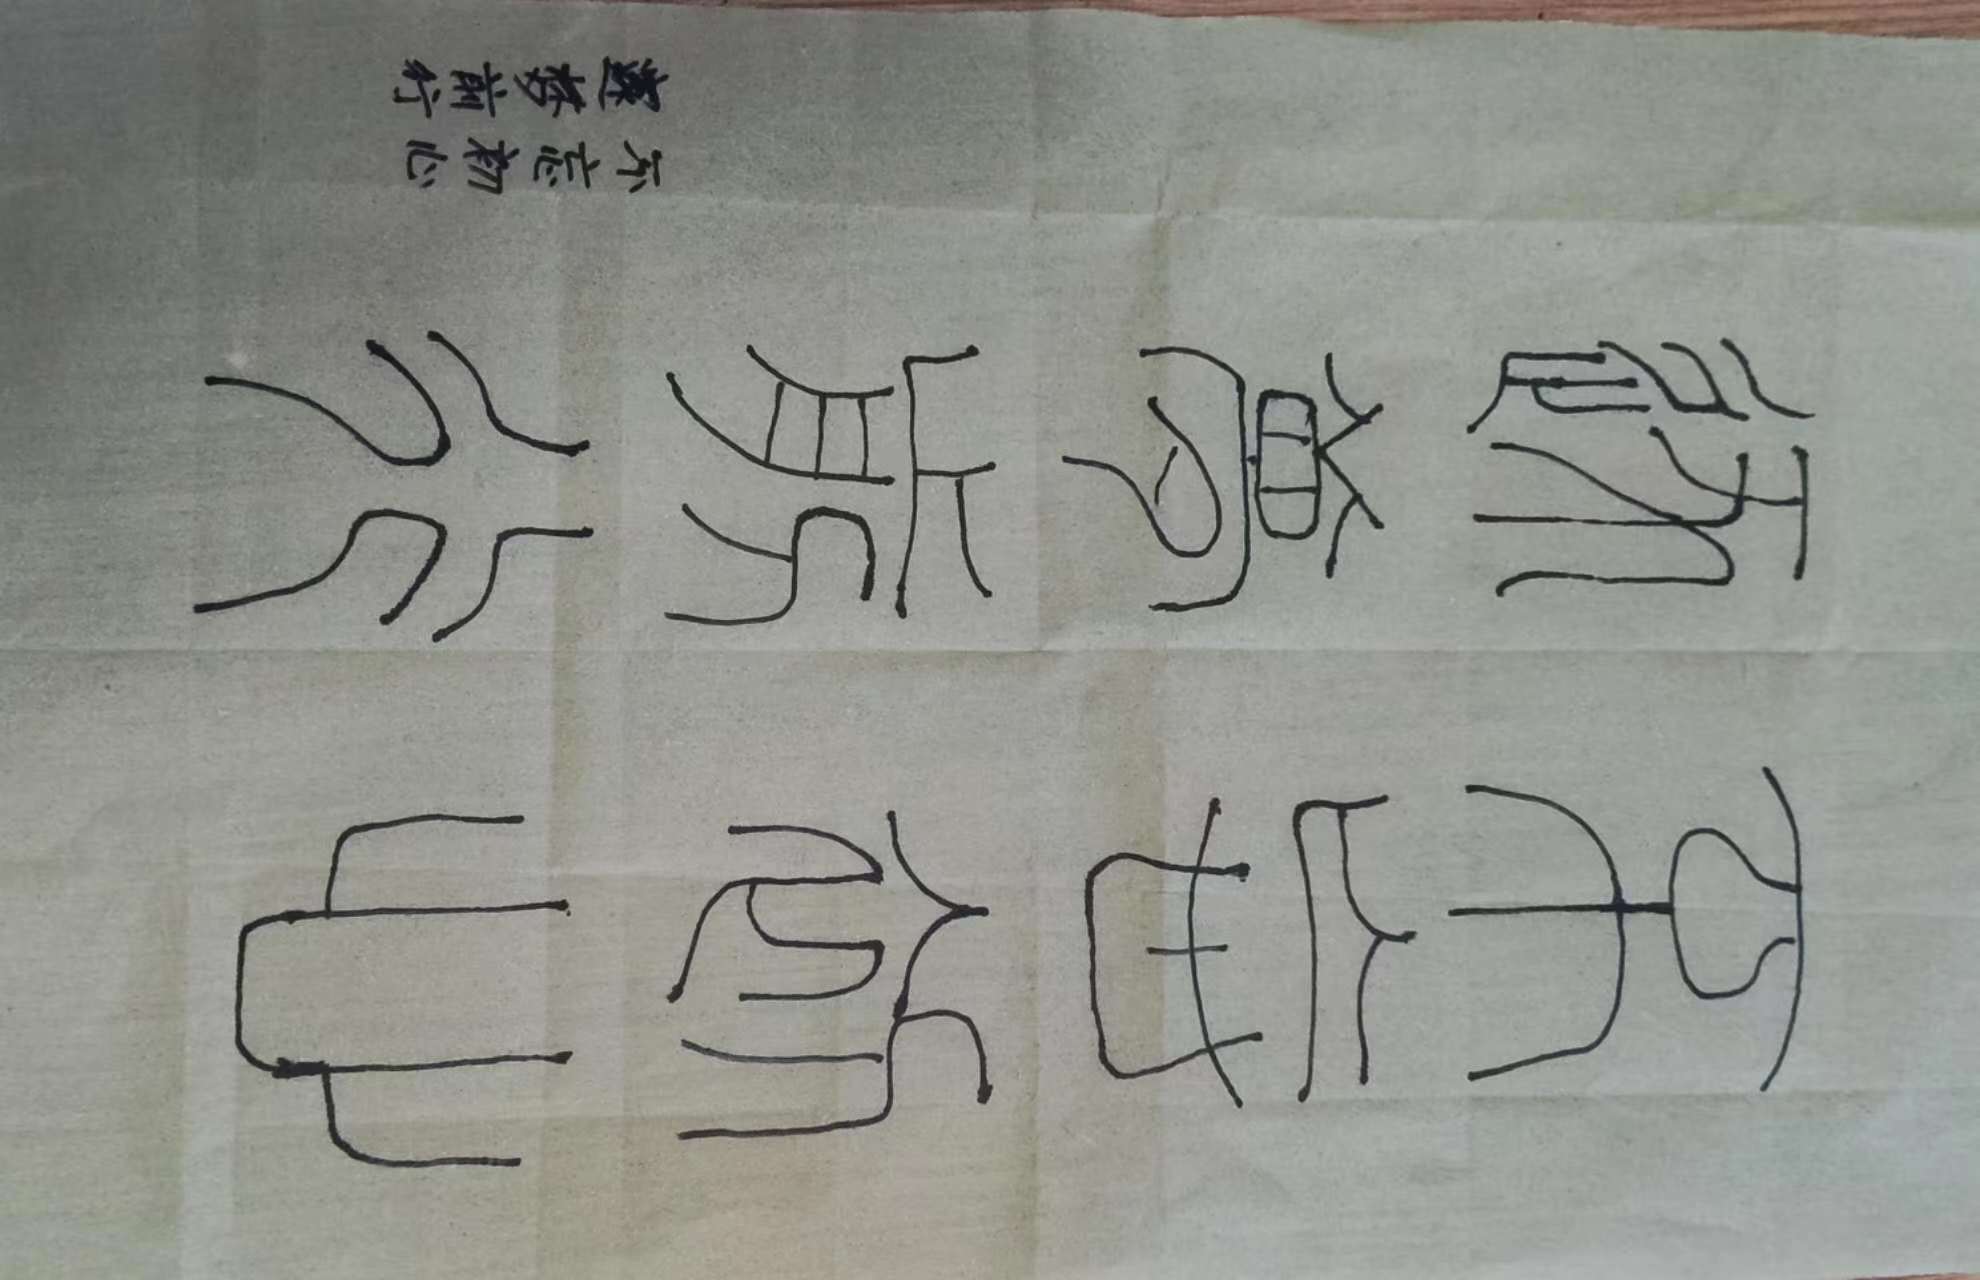 不忘初心
逐梦前行
不忘初心
逐梦前行